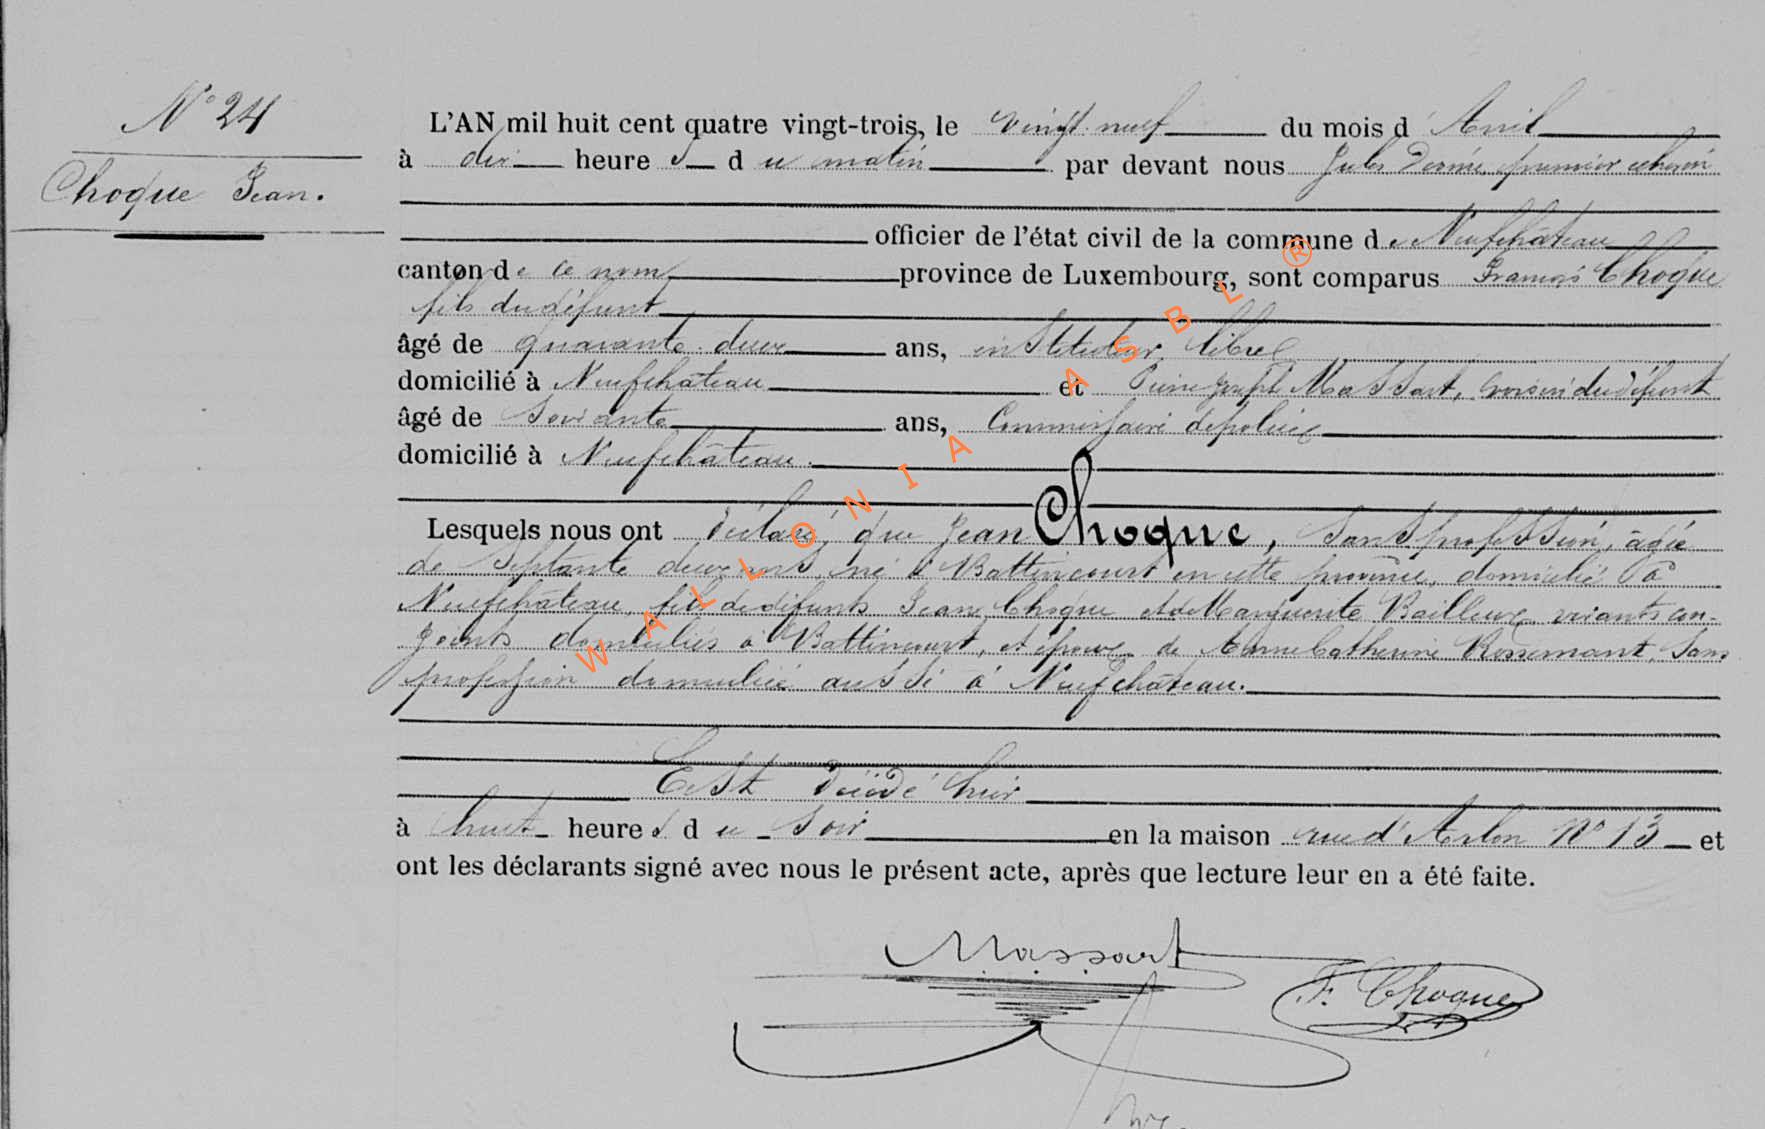 N° 24
Choque Jean.
L'AN mil huit cent quatre vingt-trois, le vingt neuf du mois d'Avril
à dix heures du matin par devant nous Jules premier échevin
officier de l'état civil de la commune de Neufchâteau
canton de ce nom province de Luxembourg, sont comparus François Choque
fils du défunt
âgé de quarante deux ans, instituteur libre
domicilié à Neufchâteau et Pierre Joseph Massart, voisin du défunt
âgé de soixante ans, Commissaire de police
domicilié à Neufchâteau.
Lesquels nous ont déclaré, que Jean Choque, sans profession, âgé
de septante deux ans, né à Battincourt en cette province, domicilié à
Neufchâteau, fils de défunts Jean Choque et de Marguerite Bailleux vivants con-
joints domiciliés à Battincourt, et époux de Anne Catherine Rossemant, sans
profession domiciliée aussi à Neufchâteau.
Est décédé hier
à huit heures du soir en la maison rue d'Arlon N° 13 et
ont les déclarants signé avec nous le présent acte, après que lecture leur en a été faite.
Massart
F. Choque
WALLONIA ASBL ®